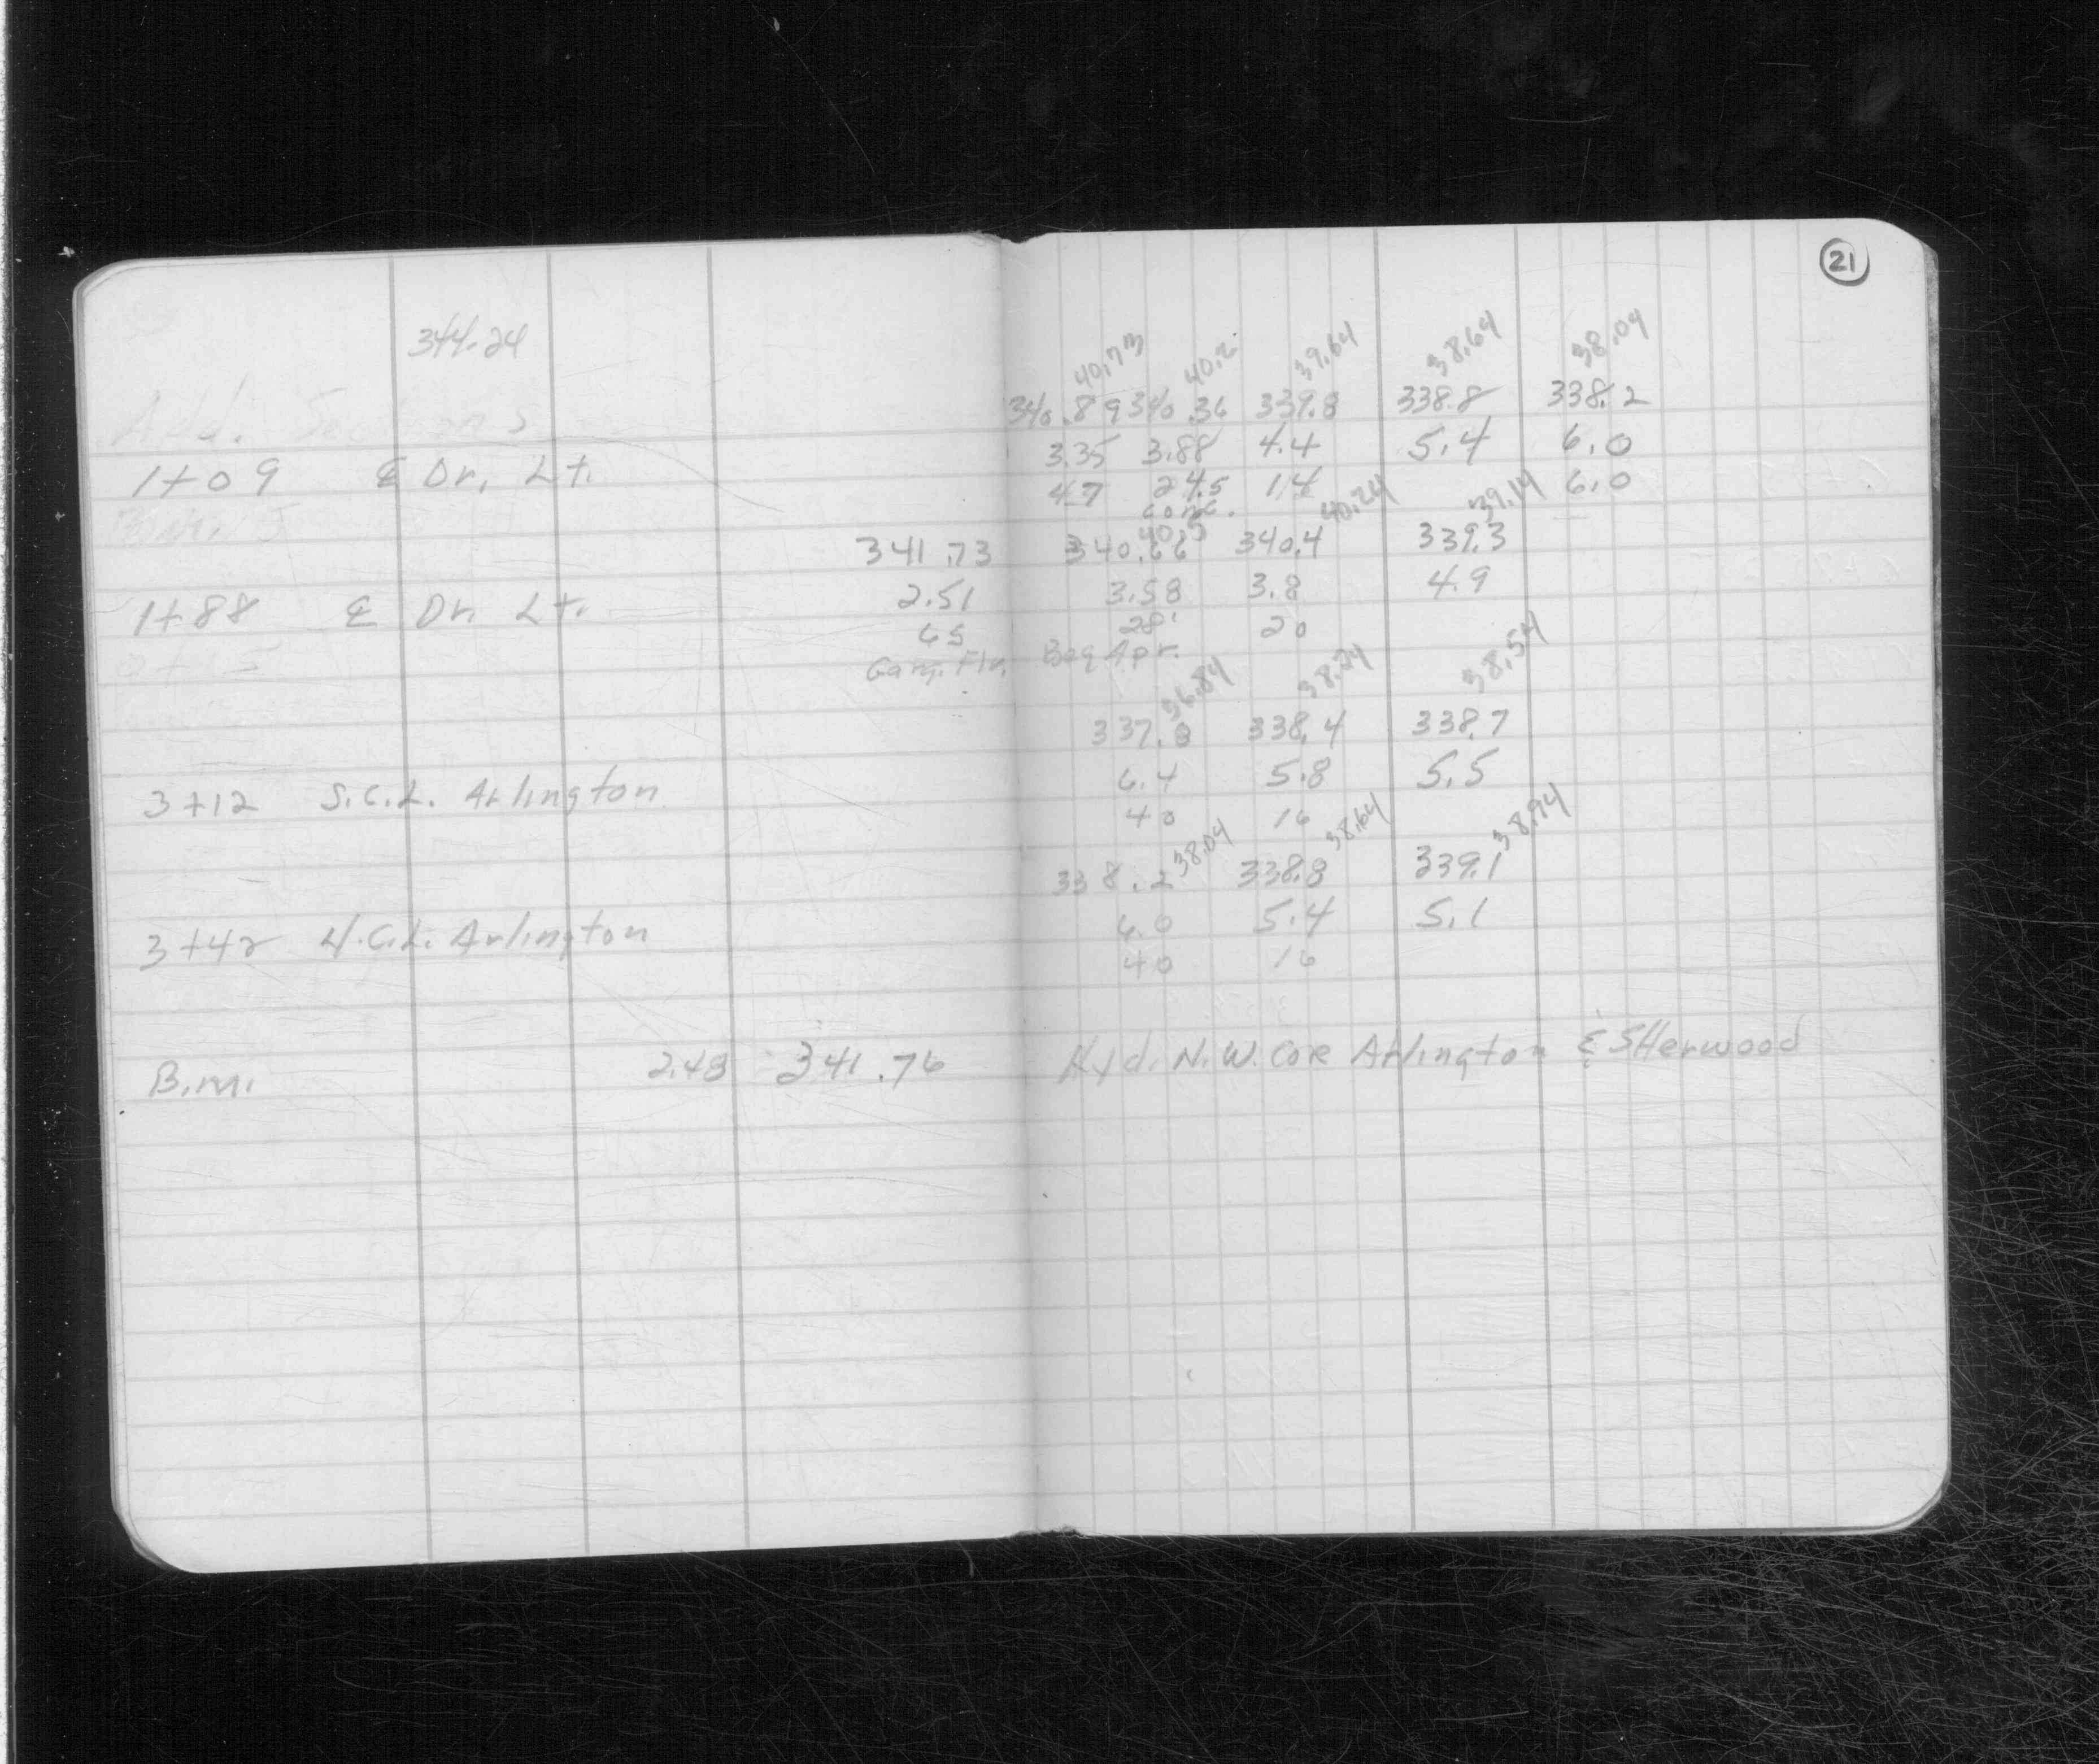 21
344.24
40.73 40.2 39.64 38.64 38.04
Add. Sections 340.89 340.36 339.8 338.8 338.2
3.35 3.88 4.4 5.4 6.0
1+09 ℄ Dr. Lt. 47 24.5 14 6.0
conc. 40.24 39.14
40.5
341.73 340.66 340.4 339.3
2.51 3.58 3.8 4.9
1+88 ℄ Dr. Lt. 65 28' 20
Garg. Flr. Beg Apr.
36.84 38.24 38.54
337.0 338.4 338.7
6.4 5.8 5.5
3+12 S.C.L. Arlington 40 16
38.04 38.64 38.94
338.2 338.8 339.1
6.0 5.4 5.1
3+42 N.C.L. Arlington 40 16
B.M. 2.48 341.76 Hyd. N.W. Cor Arlington & SHerwood